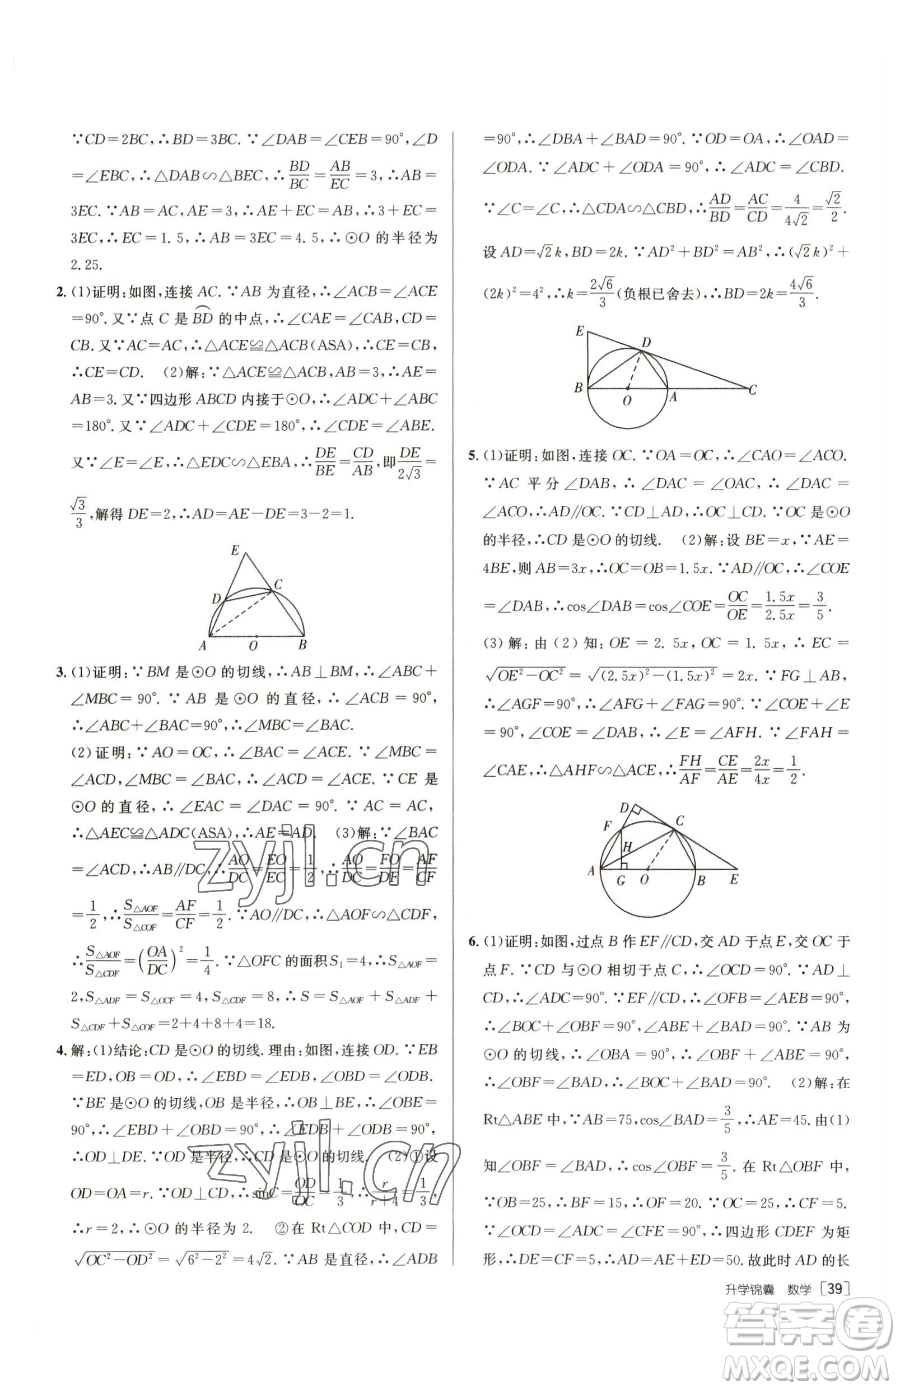 ∵CD=2BC,∴BD=3BC. ∵∠DAB=∠CEB=90°,∠D
=∠EBC,∴△DAB∽△BEC,∴BD/BC=AB/EC=3,∴AB=
3EC. ∵AB=AC,AE=3,∴AE+EC=AB,∴3+EC=
3EC,∴EC=1.5,∴AB=3EC=4.5,∴⊙O 的半径为
2.25.
2. (1)证明:如图,连接 AC. ∵AB 为直径,∴∠ACB=∠ACE
=90°. 又∵点 C 是 BD 的中点,∴∠CAE=∠CAB,CD=
CB. 又∵AC=AC,∴△ACE≌△ACB(ASA),∴CE=CB,
∴CE=CD. (2)解:∵△ACE≌△ACB,∴AE=
AB=3. 又∵四边形 ABCD 内接于⊙O,∴∠ADC+∠ABC
=180°. 又∵∠ADC+∠CDE=180°,∴∠CDE=∠ABE.
又∵∠E=∠E,∴△EDC∽△EBA,∴DE/BE=CD/AB,即DE/2√3=
√3/3,解得 DE=2,∴AD=AE-DE=3-2=1.
E
D
C
A
O
B
3. (1)证明:∵BM 是⊙O 的切线,∴AB⊥BM,∴∠ABC+
∠MBC=90°. ∵AB 是⊙O 的直径,∴∠ACB=90°,
∴∠ABC+∠BAC=90°,∴∠MBC=∠BAC.
(2)证明:∵AO=OC,∴∠BAC=∠ACE. ∵∠MBC=
∠ACD,∠MBC=∠BAC,∴∠BAC=∠ACD. ∵CE 是
⊙O 的直径,∴∠EAC=∠DAC=90°. ∵AC=AC,
∴△AEC≌△ADC(ASA),∴AE=AD. (3)解:∵∠BAC
=∠ACD,∴AB∥DC,∴AO/DC=EO/EC=1/2,∴AO/DC=FO/AF=AF/CF=
1/2,∴S△AOF/S△COF=AF/CF=1/2. ∵AO∥DC,∴△AOF∽△CDF,
∴S△AOF/S△CDF=(OA/DC)²=1/4. ∵△OFC 的面积S₁=4,∴S△AOF=
2,S△ADF=S△OCF=4,S△CDF=8,∴S=S△AOF+S△ADF+
S△CDF+S△COF=2+4+8+4=18.
4. 解:(1)结论:CD 是⊙O 的切线. 理由:如图,连接 OD. ∵EB
=ED,OB=OD,∴∠EBD=∠EDB,∠OBD=∠ODB.
∵BE 是⊙O 的切线,OB 是半径,∴OB⊥BE,∴∠OBE=
90°,∴∠EBD+∠OBD=90°,∴∠EDB+∠ODB=90°,
∴OD⊥DE. ∵OD 是半径,∴CD 是⊙O 的切线. (2)①设
OD=OA=r,∵OD⊥CD,∴sinC=OD/OC=1/3,∴r/r+4=1/3,
∴r=2,∴⊙O 的半径为 2. ②在 Rt△COD 中,CD=
√OC²-OD²=√6²-2²=4√2. ∵AB 是直径,∴∠ADB
=90°,∴∠DBA+∠BAD=90°. ∵OD=OA,∴∠OAD=
∠ODA. ∵∠ADC+∠ODA=90°,∴∠ADC=∠CBD.
∵∠C=∠C,∴△CDA∽△CBD,∴AD/BD=AC/CD=4/4√2=√2/2.
设 AD=√2k,BD=2k. ∵AD²+BD²=AB²,∴(√2k)²+
(2k)²=4²,∴k=2√6/3(负根已舍去),∴BD=2k=4√6/3.
E
D
B
O
A
C
5. (1)证明:如图,连接 OC. ∵OA=OC,∴∠CAO=∠ACO.
∵AC 平分∠DAB,∴∠DAC=∠OAC,∴∠DAC=
∠ACO,∴AD∥OC. ∵CD⊥AD,∴OC⊥CD. ∵OC 是⊙O
的半径,∴CD 是⊙O 的切线. (2)解:设 BE=x,∵AE=
4BE,则 AB=3x,∴OC=OB=1.5x. ∵AD∥OC,∴∠COE
=∠DAB,∴cos∠DAB=cos∠COE=OC/OE=1.5x/2.5x=3/5.
(3)解:由(2)知:OE=2.5x,OC=1.5x,∴EC=
√OE²-OC²=√(2.5x)²-(1.5x)²=2x. ∵FG⊥AB,
∴∠AGF=90°,∴∠AFG+∠FAG=90°. ∵∠COE+∠E=
90°,∠COE=∠DAB,∴∠E=∠AFH. ∵∠FAH=
∠CAE,∴△AHF∽△ACE,∴FH/AF=CE/AE=2x/4x=1/2.
D
F
C
H
A
G
O
B
E
6. (1)证明:如图,过点 B 作 EF∥CD,交 AD 于点 E,交 OC 于
点 F. ∵CD 与⊙O 相切于点 C,∴∠OCD=90°. ∵AD⊥
CD,∴∠ADC=90°. ∵EF∥CD,∴∠OFB=∠AEB=90°,
∴∠BOC+∠OBF=90°,∠ABE+∠BAD=90°. ∵AB 为
⊙O 的切线,∴∠OBA=90°,∴∠OBF+∠ABE=90°,
∴∠OBF=∠BAD,∴∠BOC+∠BAD=90°. (2)解:在
Rt△ABE 中,∵AB=75,cos∠BAD=3/5,∴AE=45. 由(1)
知∠OBF=∠BAD,∴cos∠OBF=3/5. 在 Rt△OBF 中,
∵OB=25,∴BF=15,∴OF=20. ∵OC=25,∴CF=5.
∵∠OCD=∠ADC=∠CFE=90°,∴四边形 CDEF 为矩
形,∴DE=CF=5,∴AD=AE+ED=50. 故此时 AD 的长
升学锦囊 数学 [39]
zyjl.cn
zyjl.cn
答案圈
MXQE.COM